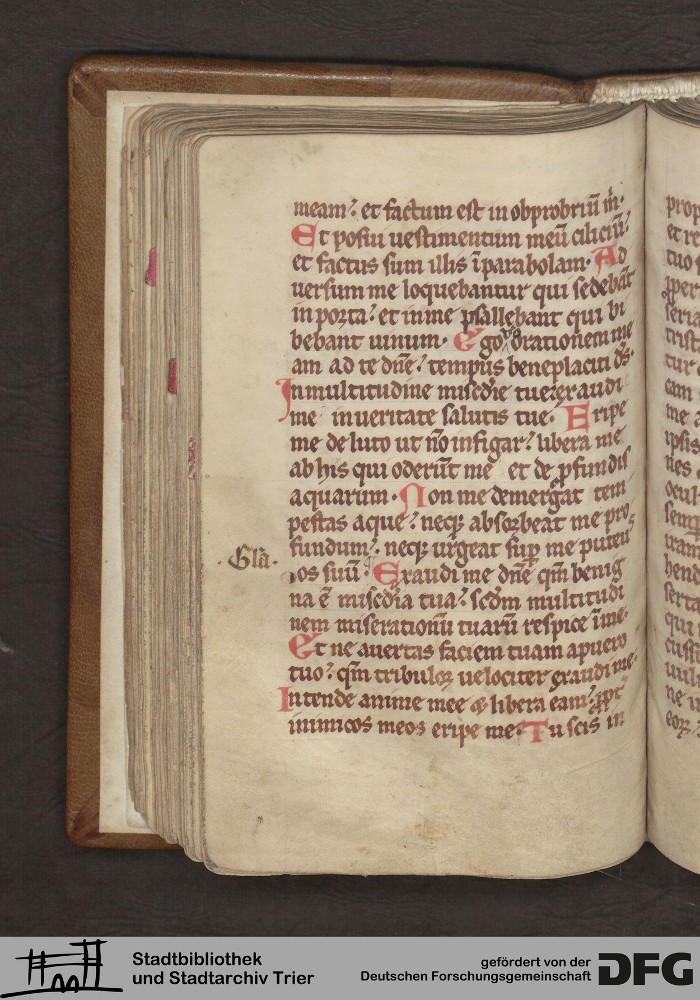 meam? et factum est in obprobriū m̄·
Et posui uestimentum meū ciliciū?
et factus sum illis ī parabolam· Ad
uersum me loquebantur qui sedebāt
in porta? et in me psallebant qui bi
bebant uinum· Ego ꝟo orationem me
am ad te dn̄e? tempus beneplaciti ds̄·
In multitudine misc̄die tue? exaudi
me in ueritate salutis tue· Eripe
me de luto ut nō infigar? libera me
ab his qui oderūt me et de ꝓfundis
aquarum· Non me demergat tem
pestas aque? neqꝫ absorbeat me pro
fundum? neqꝫ urgeat suꝑ me puteus
os suū· Exaudi me dn̄e qm̄ benig
·Gla·
na ē misc̄dia tua? scdm multitudi
nem miserationū tuarū respice ī me·
Et ne auertas faciem tuam a puero
tuo? qm̄ tribulor uelociter exaudi me·
Intende anime mee & libera eam? ꝓpt̄
inimicos meos eripe me· Tu scis in
prop
et re
tuo
seria
trist
tur
eam
me a
ipsis
nes
ocul
semp
iram
hend
serta
qui
custi
ne
Stadtbibliothek
und Stadtarchiv Trier
gefördert von der
Deutschen Forschungsgemeinschaft
DFG